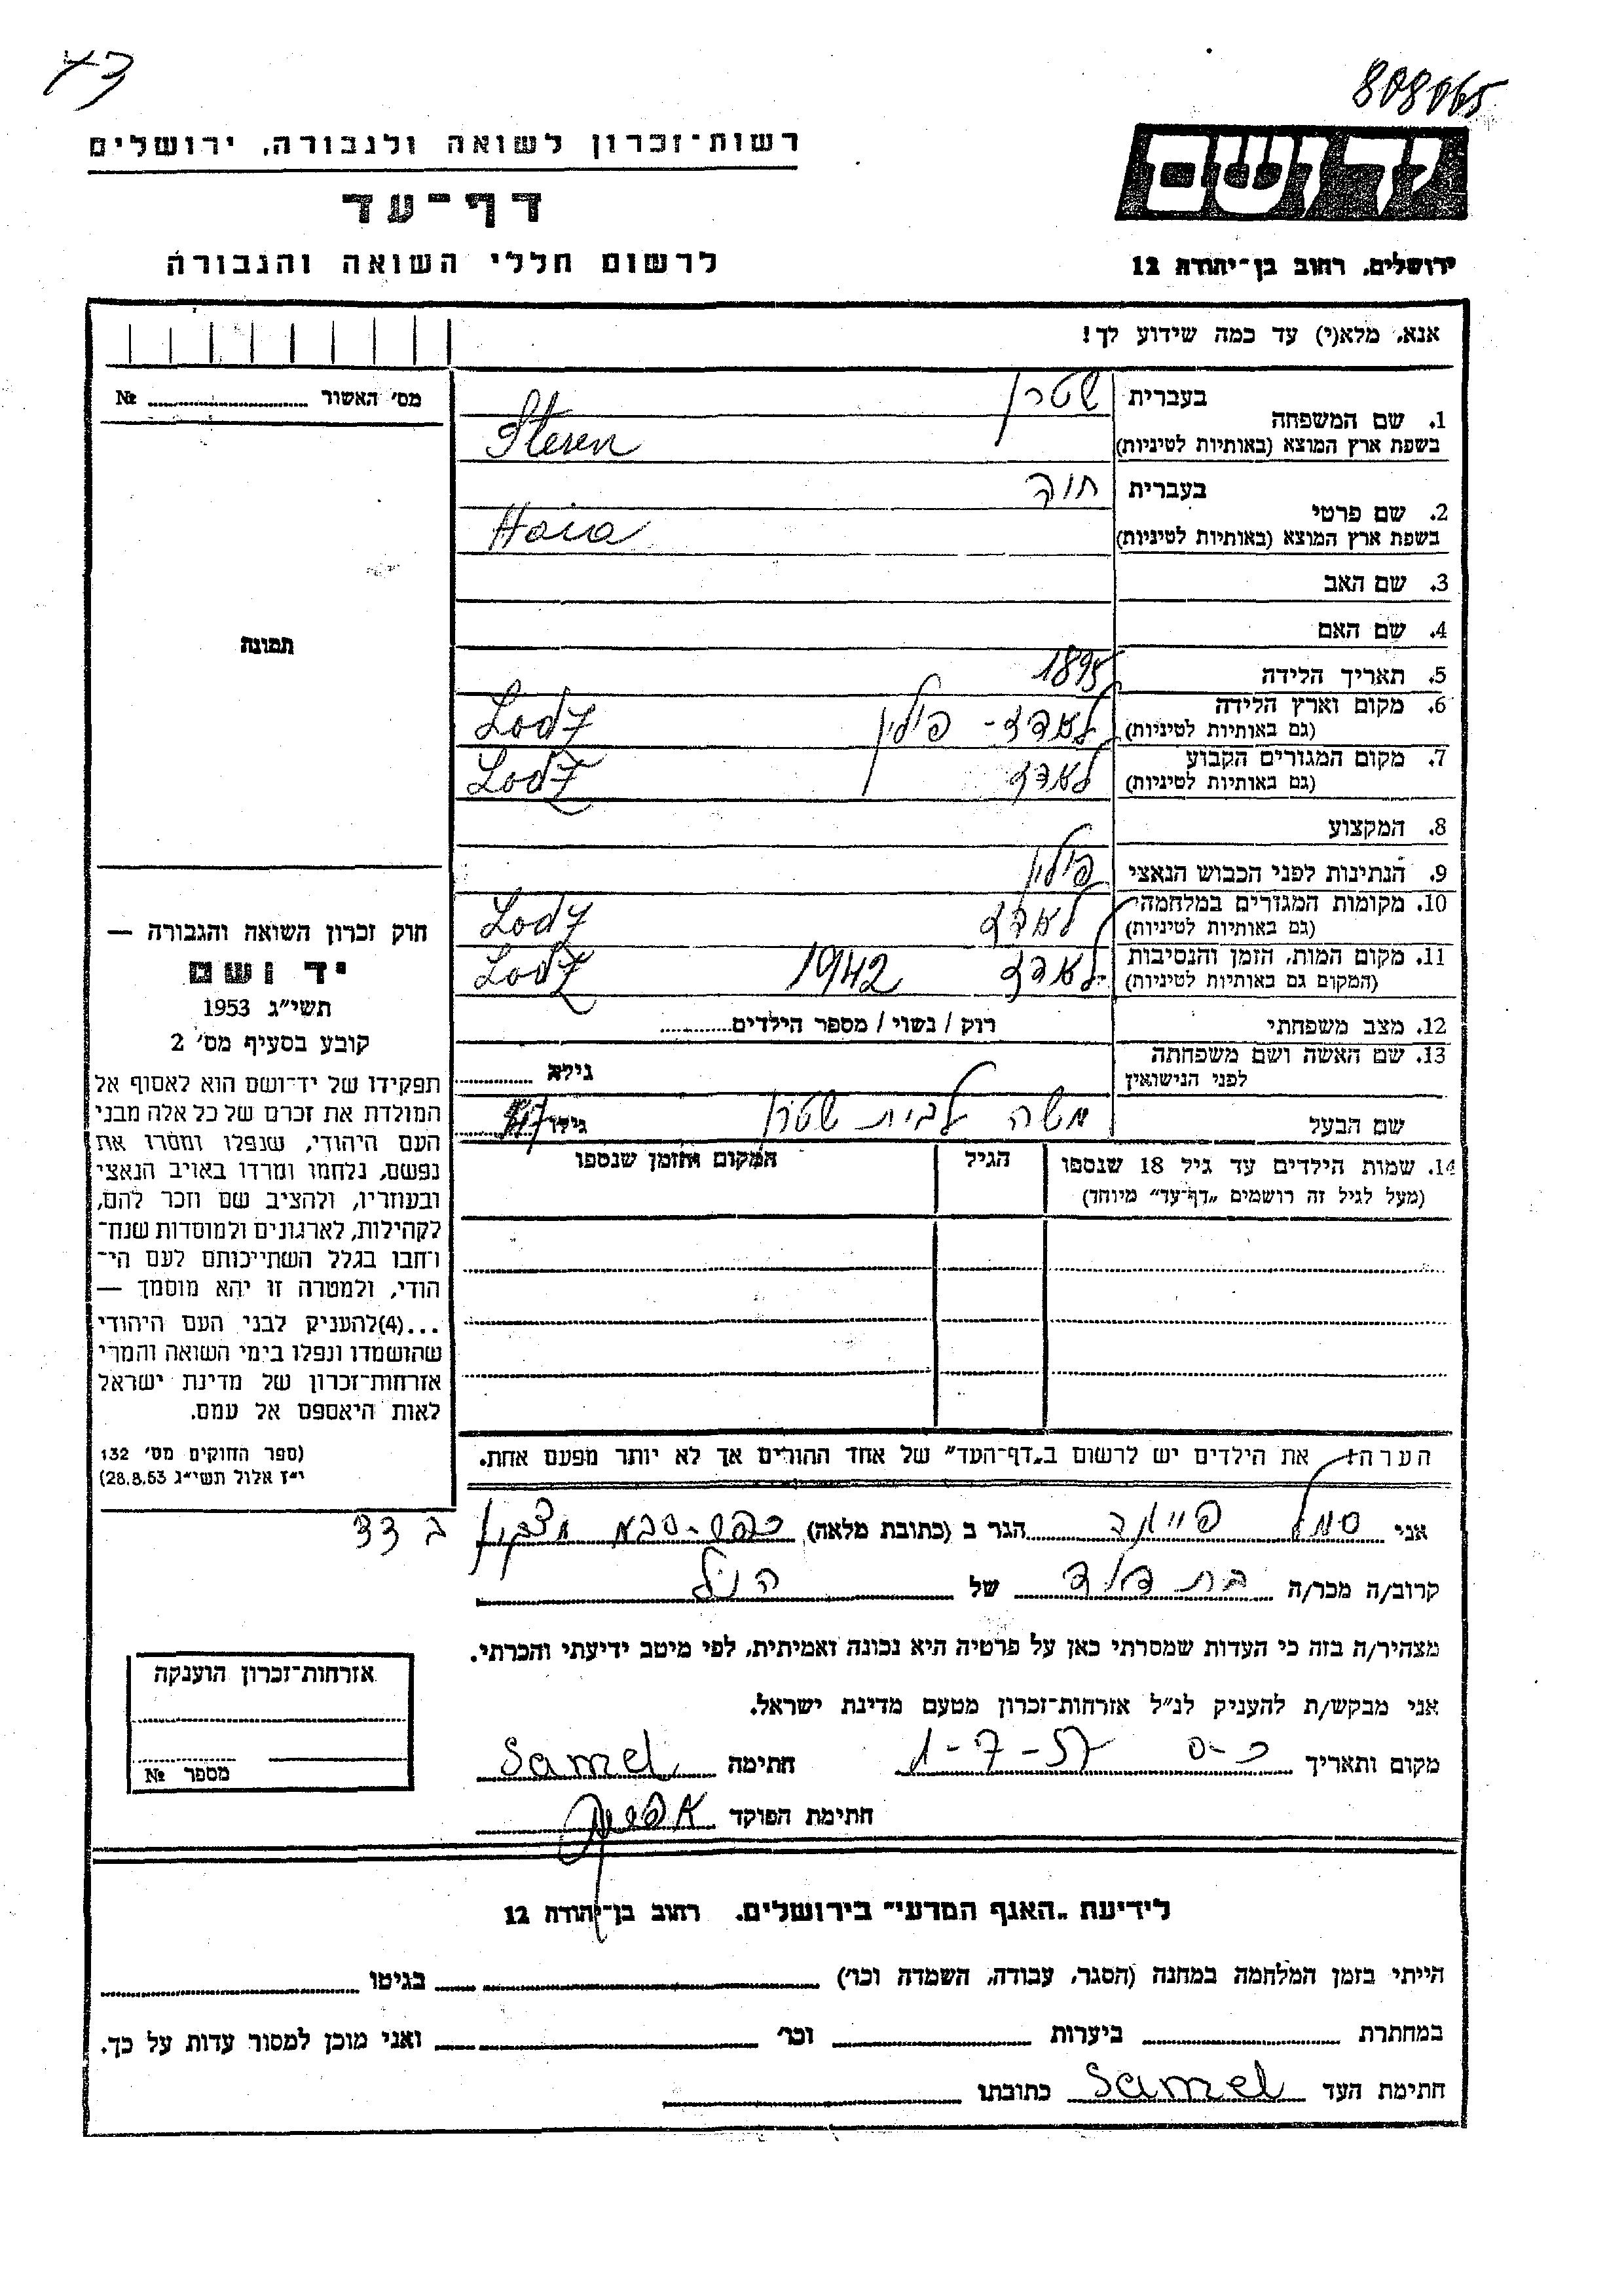 73
808065
רשות־זכרון לשואה ולגבורה, ירושלים
ידושם
דף־עד
לרשום חללי השואה והגבורה
ירושלים, רחוב בן־יהודה 12
אנא, מלא(י) עד כמה שידוע לך!
מס׳ האשור № 
1. שם המשפחה בעברית שטרן
בשפת ארץ המוצא (באותיות לטיניות) Steren
2. שם פרטי בעברית חוה
בשפת ארץ המוצא (באותיות לטיניות) Haia
3. שם האב
4. שם האם
תמונה
5. תאריך הלידה 1895
6. מקום וארץ הלידה (גם באותיות לטיניות) לאדז - פולין Lodz
7. מקום המגורים הקבוע (גם באותיות לטיניות) לאדז Lodz
8. המקצוע
9. הנתינות לפני הכבוש הנאצי פולין
10. מקומות המגורים במלחמה (גם באותיות לטיניות) לאדז Lodz
11. מקום המות, הזמן והנסיבות (המקום גם באותיות לטיניות) לאדז 1942 Lodz
12. מצב משפחתי רוק / נשוי / מספר הילדים
13. שם האשה ושם משפחתה לפני הנישואין גילה
שם הבעל משה לבית שטרן גילו 47
14. שמות הילדים עד גיל 18 שנספו הגיל המקום והזמן שנספו
(מעל לגיל זה רושמים „דף־עד״ מיוחד)
חוק זכרון השואה והגבורה —
יד ושם
תשי״ג 1953
קובע בסעיף מס׳ 2
תפקידו של יד־ושם הוא לאסוף אל
המולדת את זכרם של כל אלה מבני
העם היהודי, שנפלו ומסרו את
נפשם, נלחמו ומרדו באויב הנאצי
ובעוזריו, ולהציב שם וזכר להם,
לקהילות, לארגונים ולמוסדות שנח־
רחבו בגלל השתייכותם לעם הי־
הודי, ולמטרה זו יהא מוסמך —
...(4)להעניק לבני העם היהודי
שהושמדו ונפלו בימי השואה והמרי
אזרחות־זכרון של מדינת ישראל
לאות היאספם אל עמם.
(ספר החוקים מס׳ 132
י״ז אלול תשי״ג 28.8.53)
הערה: את הילדים יש לרשום ב„דף־העד״ של אחד ההורים אך לא יותר מפעם אחת.
אני סמל הגר ב (כתובת מלאה) כפר-סבא ב 33
קרוב/ה מכר/ה בת דוד של הנ״ל
מצהיר/ה בזה כי העדות שמסרתי כאן על פרטיה היא נכונה ואמיתית, לפי מיטב ידיעתי והכרתי.
אני מבקש/ת להעניק לנ״ל אזרחות־זכרון מטעם מדינת ישראל.
מקום ותאריך כ-ס 1-7-57 חתימה Samel
חתימת הפוקד
אזרחות־זכרון הוענקה
מספר №
לידיעת „האגף המדעי״ בירושלים, רחוב בן־יהודה 12
הייתי בזמן המלחמה במחנה (הסגר, עבודה, השמדה וכו׳) בגיטו
במחתרת ביערות וכו׳ ואני מוכן למסור עדות על כך.
חתימת העד Samel כתובתו